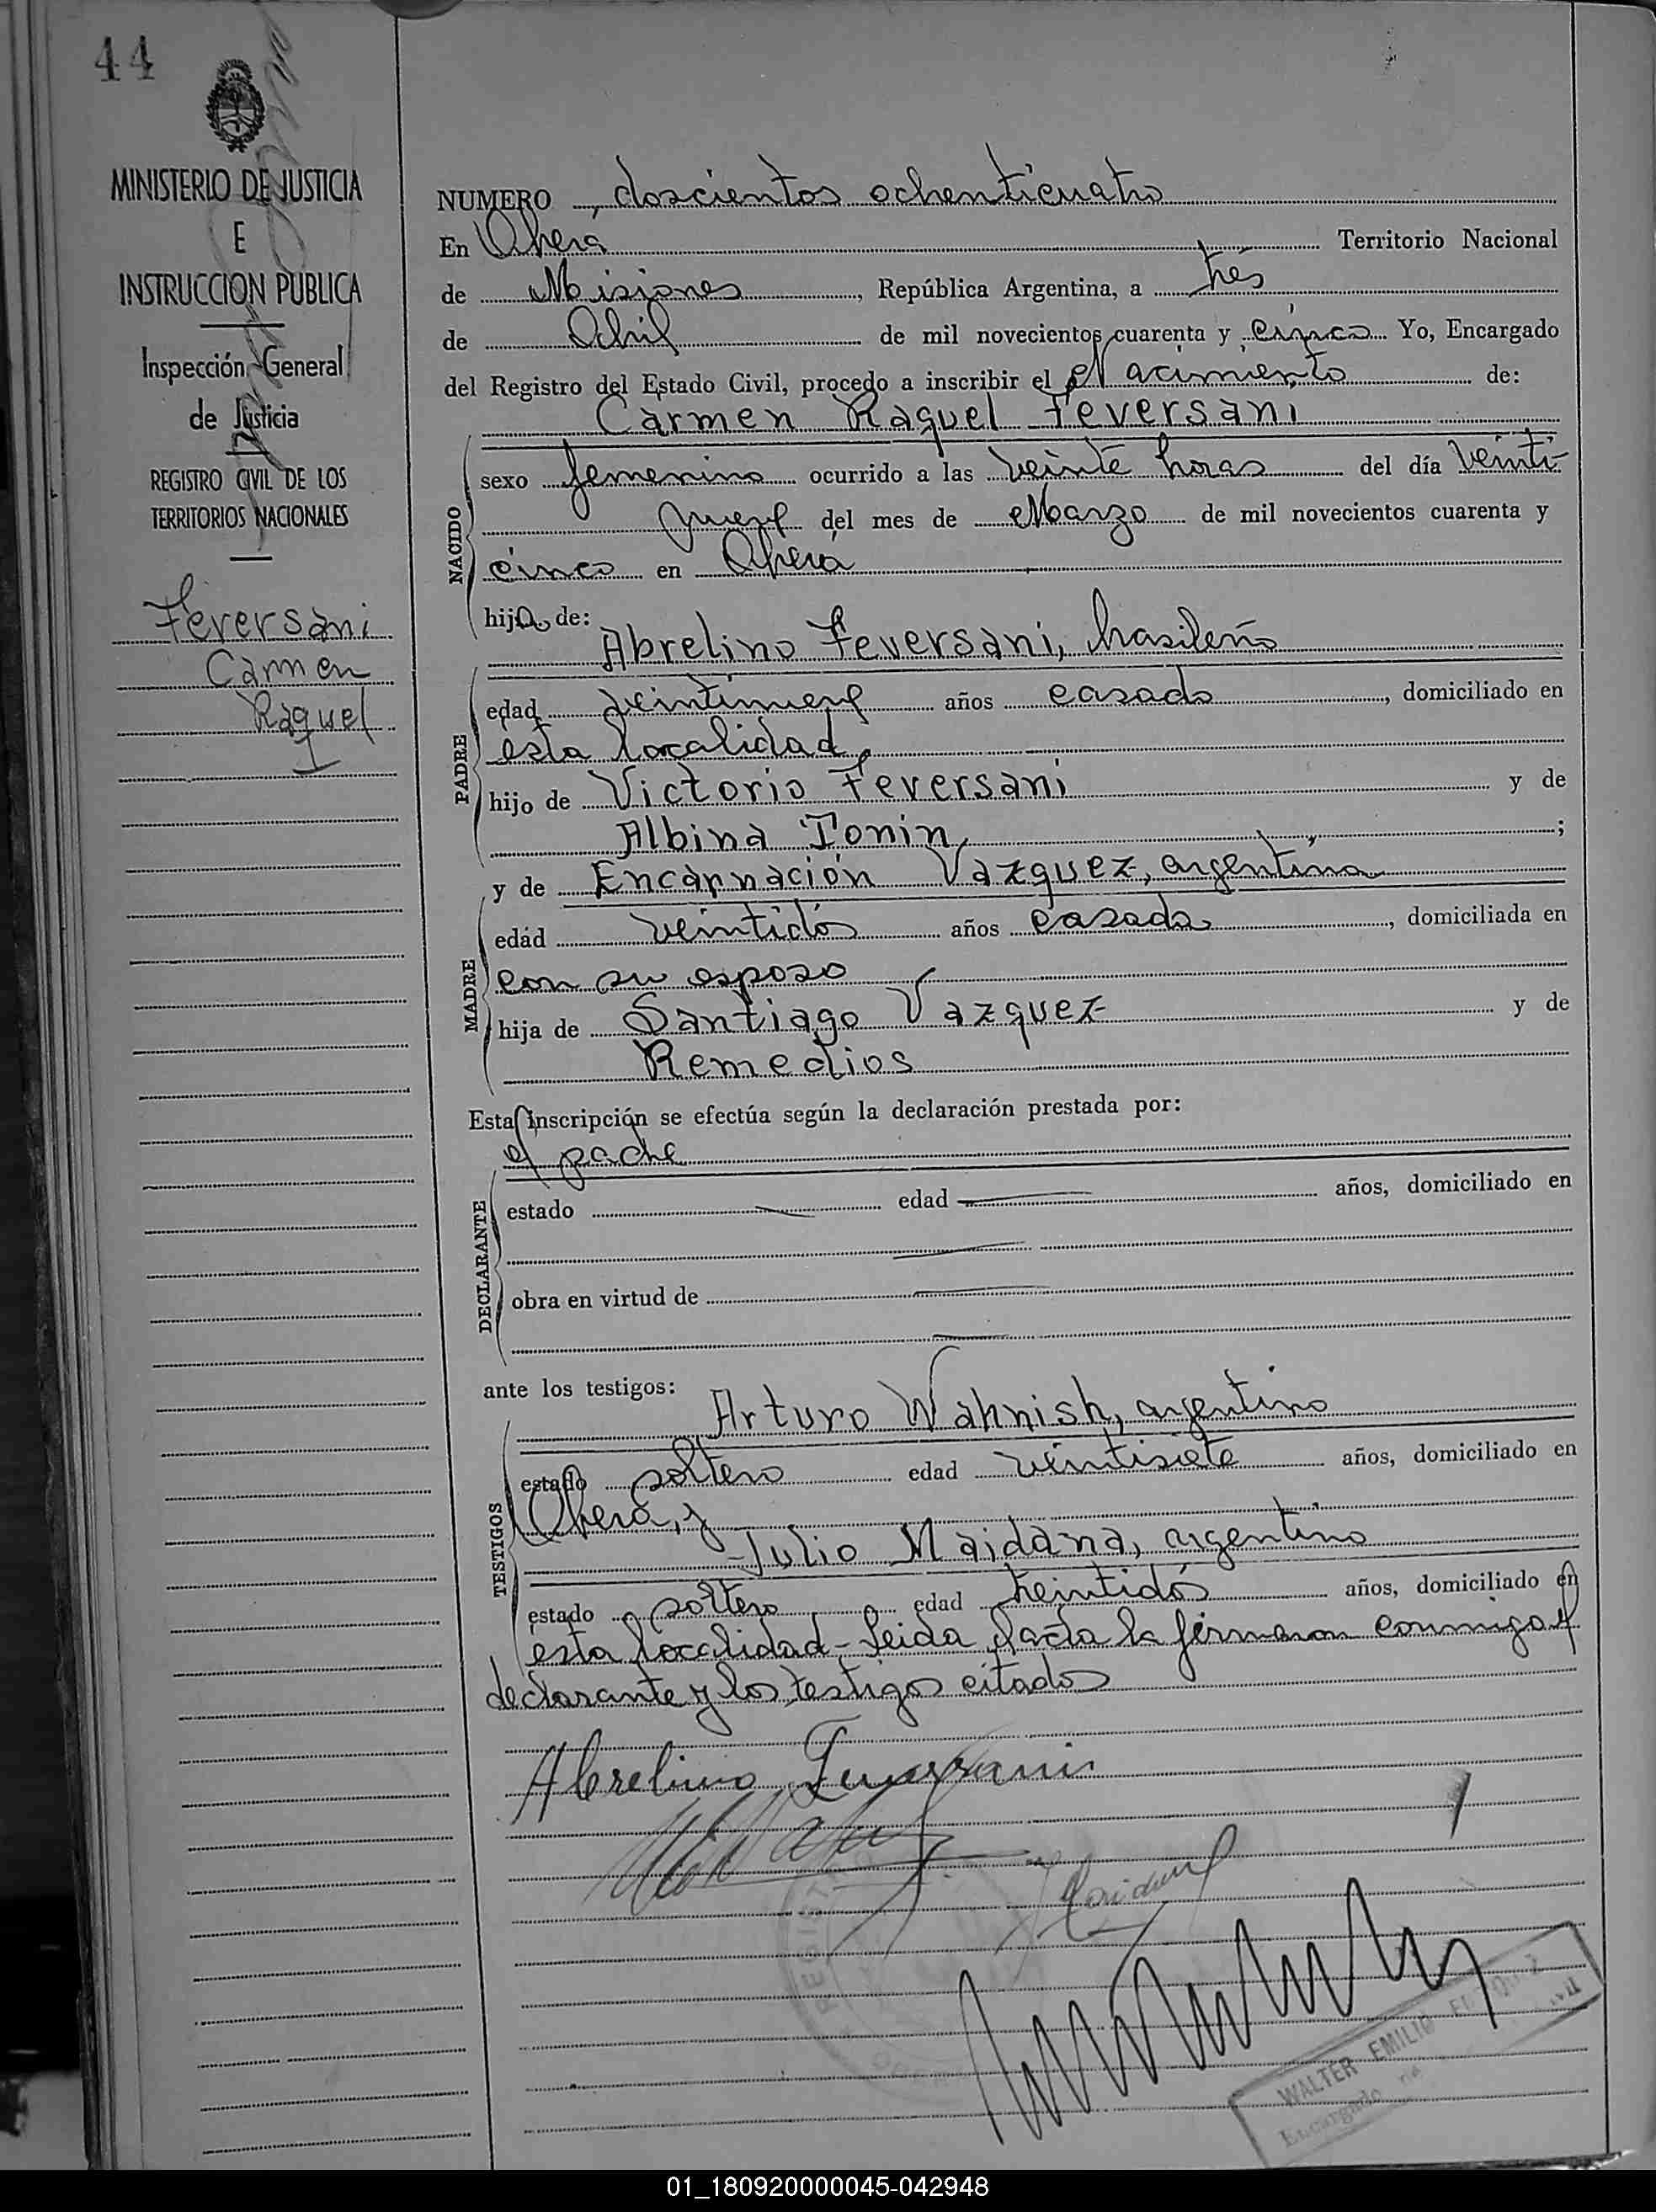 44
MINISTERIO DE JUSTICIA
E
INSTRUCCION PUBLICA
Inspección General
de Justicia
REGISTRO CIVIL DE LOS
TERRITORIOS NACIONALES
Feversani
Carmen
Raquel
NUMERO doscientos ochenticuatro
En Oberá Territorio Nacional
de Misiones, República Argentina, a tres
de Abril de mil novecientos cuarenta y cinco Yo, Encargado
del Registro del Estado Civil, procedo a inscribir el Nacimiento de:
Carmen Raquel Feversani
NACIDO
sexo femenino ocurrido a las veinte horas del día veinti-
nueve del mes de Marzo de mil novecientos cuarenta y
cinco en Oberá
hija de:
Abrelino Feversani, brasileño
PADRE
edad veintinueve años casado, domiciliado en
esta localidad,
hijo de Victorio Feversani y de
Albina Tonin, ;
y de Encarnación Vazquez, argentina
MADRE
edad veintidós años casada, domiciliada en
con su esposo
hija de Santiago Vazquez y de
Remedios
Esta inscripción se efectúa según la declaración prestada por:
el padre
DECLARANTE
estado edad años, domiciliado en
obra en virtud de
ante los testigos:
Arturo Wahnish, argentino
TESTIGOS
estado soltero edad veintisiete años, domiciliado en
Oberá, y
Julio Maidana, argentino
estado soltero edad treintidós años, domiciliado en
esta localidad - Leida el acta la firmaron conmigo el
declarante y los testigos citados
Abrelino Feversani
REGIST
WALTER EMILIO
Encargado
01_180920000045-042948